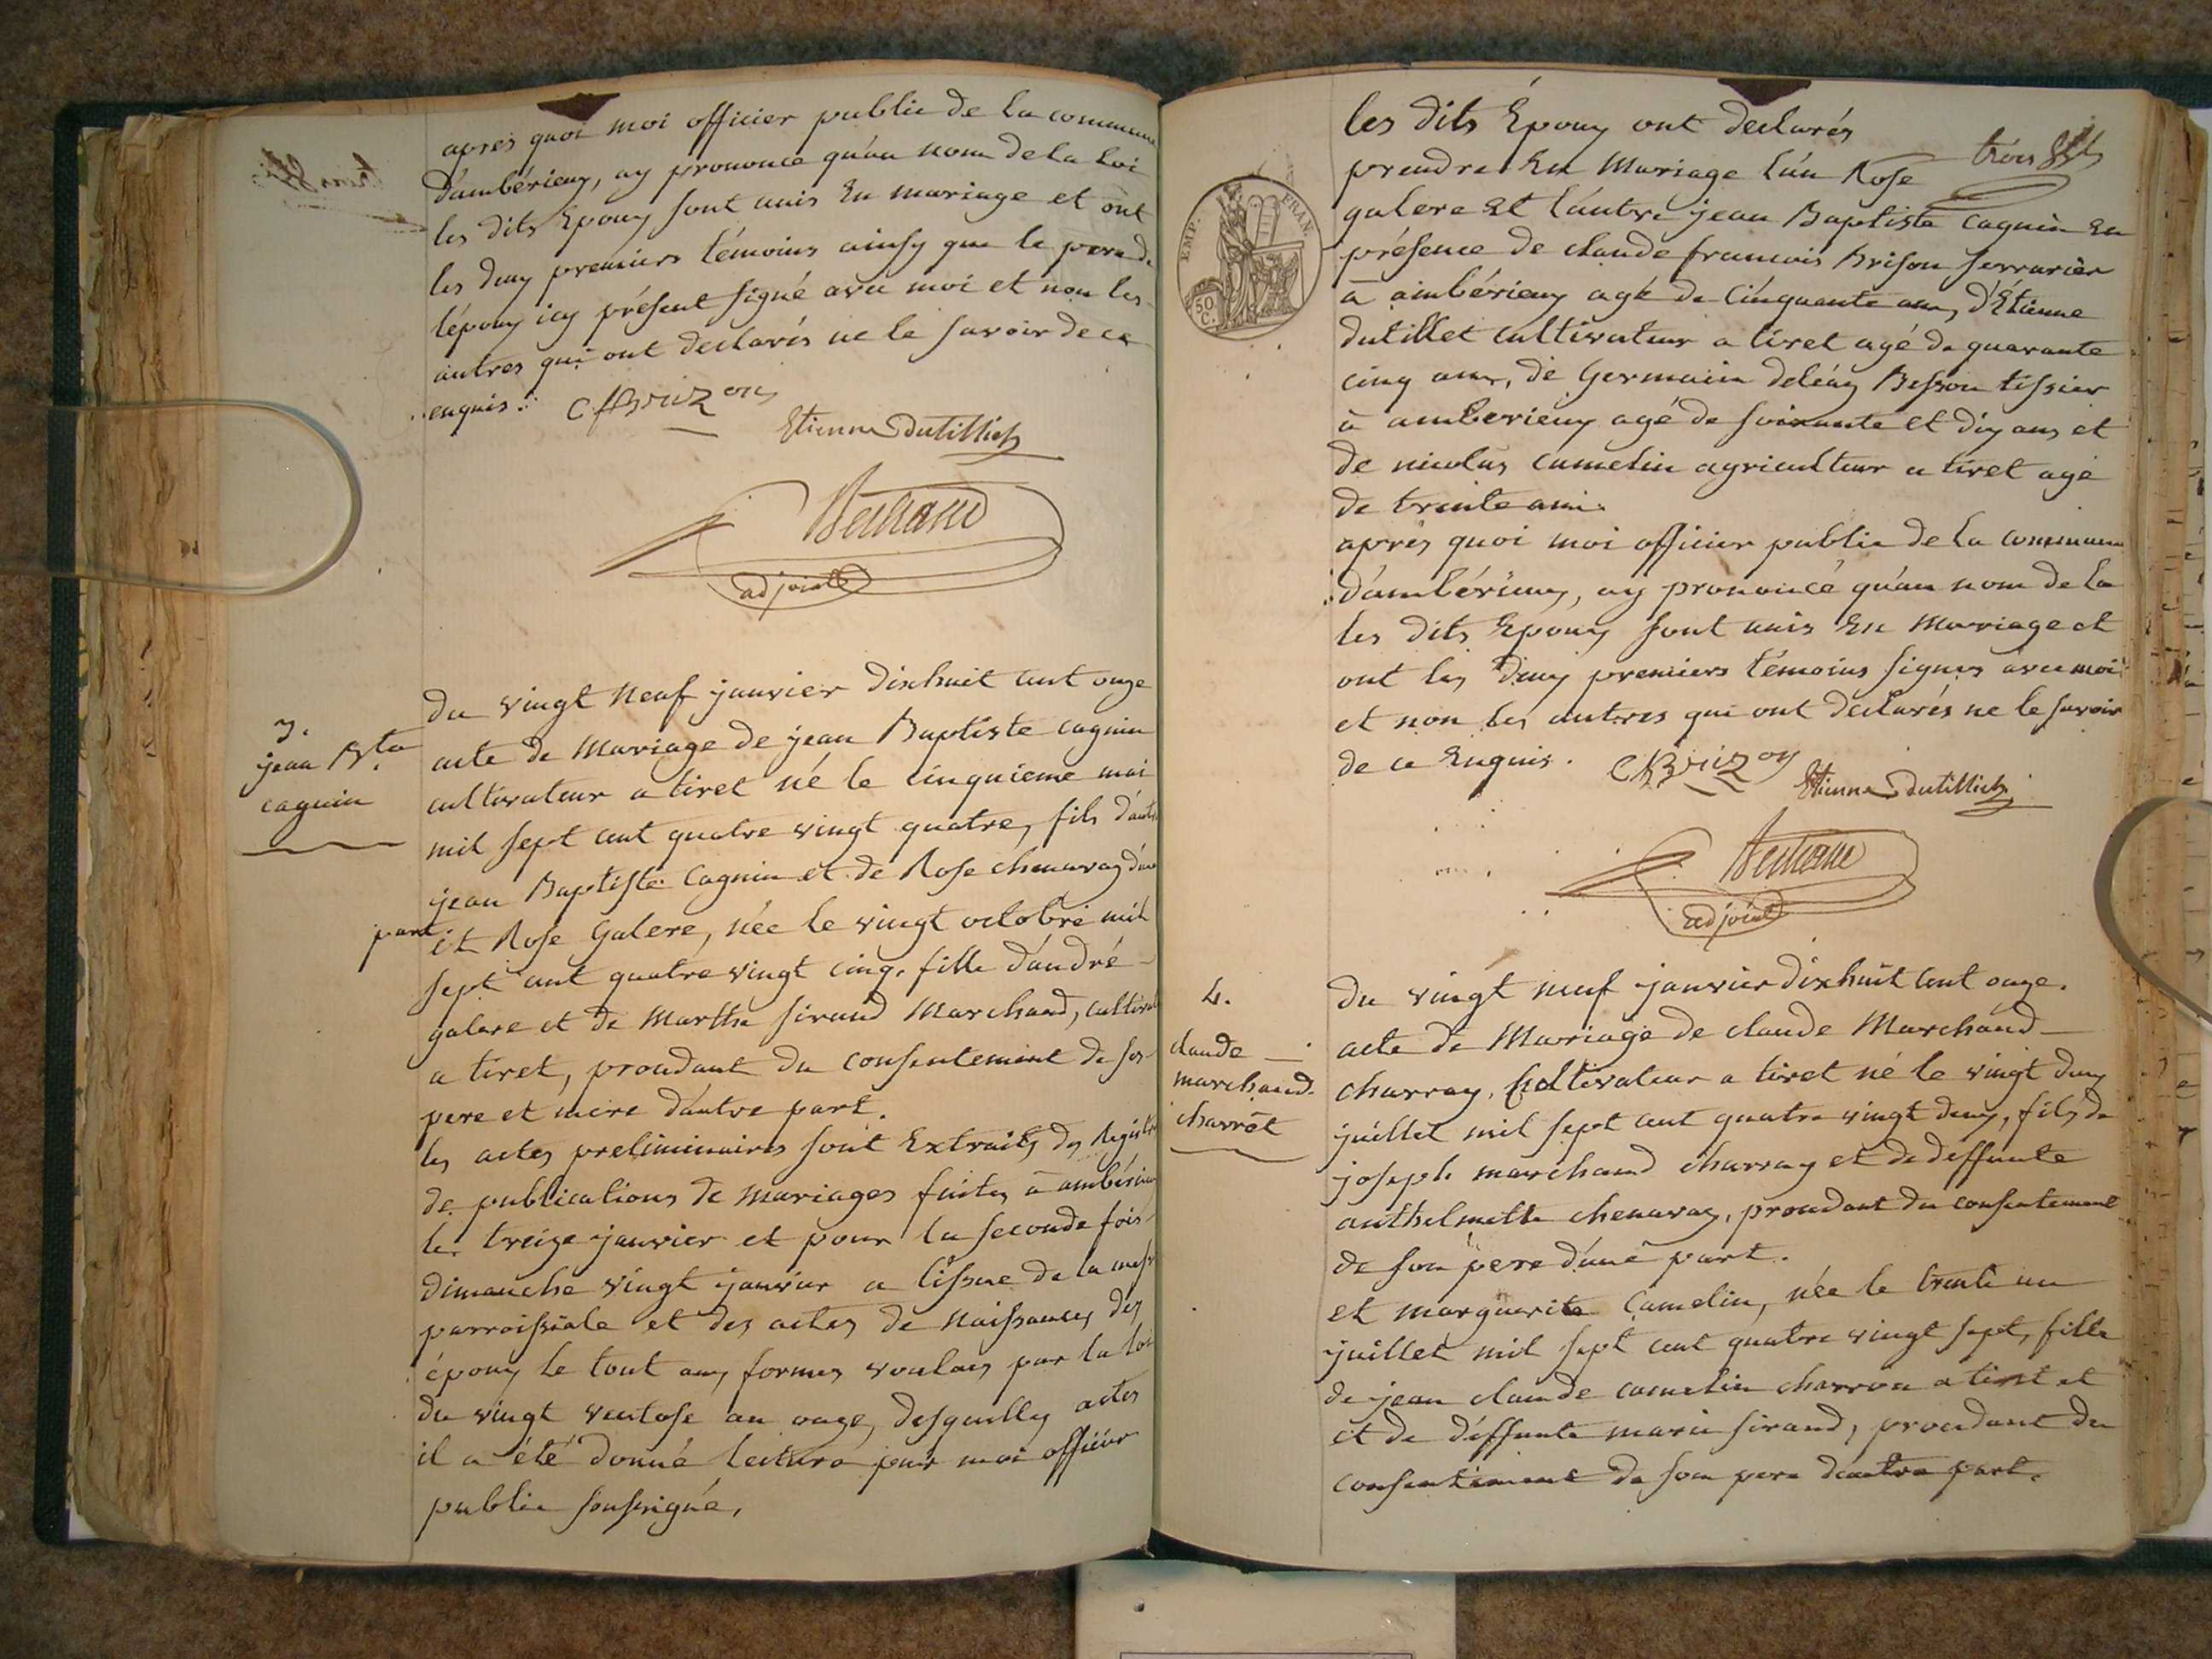 après quoi moi officier public de la commune
d'ambérieux, ay prononcé qu'au nom de la Loi
les dits Epoux sont unis En mariage et ont
les deux premiers témoins ainsy que le pere de
l'époux icy présent signé avec moi et non les
autres qui ont declarés ne le savoir de ce
enquis. CfBrizon
Etienne Dutillieh
Bertrand
adjoint
3.
jean Bte
cagnin
du vingt Neuf janvier dixhuit cent onze
acte de Mariage de jean Baptiste cagnin
cultivateur a tiret né le cinquieme mai
mil sept cent quatre vingt quatre, fils d'autre
jean Baptiste Cagnin et de Rose chenavaz d'une
part. et Rose Galere, née le vingt octobre mil
sept cent quatre vingt cinq, fille d'andré
galere et de Marthe sirand Marchand, cultivat
a tiret, procedant du consentement de ses
pere et mere d'autre part.
les actes preliminaires sont Extraits des Registre
de publications de mariages faites à ambérieux
le treize janvier et pour la seconde fois
dimanche vingt janvier a lissue de la messe
parroissiale et des actes de Naissances des
époux le tout aux formes voulues par la loi
du vingt ventose an onze, desquelles actes
il a été donné lecture par moi officier
public soussigné,
les dits Époux ont declarés
trois
prendre En Mariage l'un Rose
galere Et l'autre jean Baptiste Cagnin En
EMP. FRAN.
50 C.
présence de claude francois Brison serrurier
à ambérieux agé de cinquante ans, d'Étienne
dutillet cultivateur a tiret agé de quarante
cinq ans, de Germain deléaz Besson tissier
à amberieux agé de soixante et dix ans et
de nicolas camelin agriculteur a tiret agé
de trente ans.
après quoi moi officier public de la commune
d'ambérieux, ay prononcé qu'au nom de la
les dits Epoux sont unis En Mariage et
ont les deux premiers témoins signés avec moi
et non les autres qui ont declarés ne le savoir
de ce Enquis. CfBrizon
Etienne Dutillieh
Bertrand
adjoint
4.
claude
marchand
charrot
du vingt neuf janvier dixhuit cent onze.
acte de Mariage de claude Marchand
charray, Cultivateur a tiret né le vingt deux
juillet mil sept cent quatre vingt deux, fils de
joseph marchand charray et de deffunte
anthelmette chenavaz, procedant du consentement
de son pere d'une part.
et marguerite Camelin, née le trente un
juillet mil sept cent quatre vingt sept, fille
de jean claude camelin charron a tiret et
et de deffunte marie sirand, procedant du
consentement de son pere d'autre part.